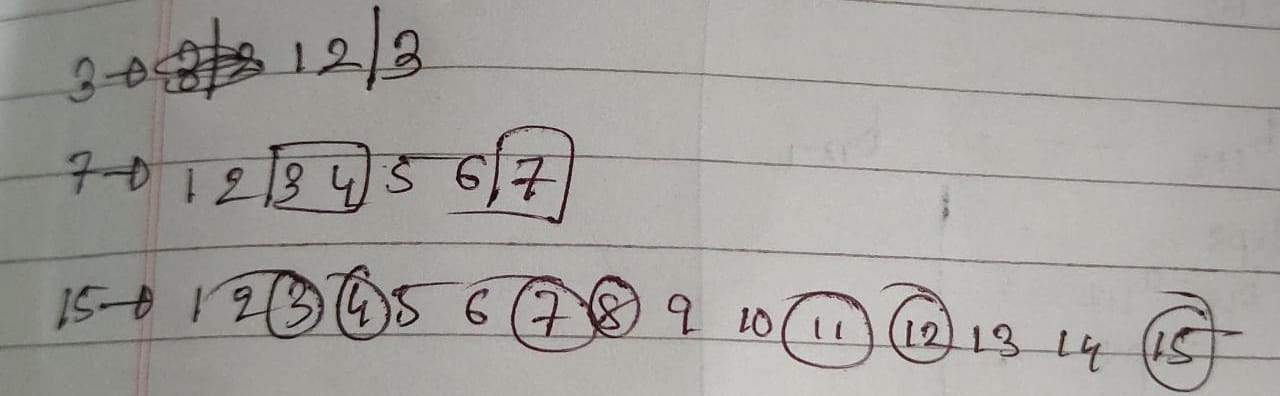 3→ 1 2/3
7→ 1 2 3 4 5 6 7
15→ 1 2 3 4 5 6 7 8 9 10 11 12 13 14 15